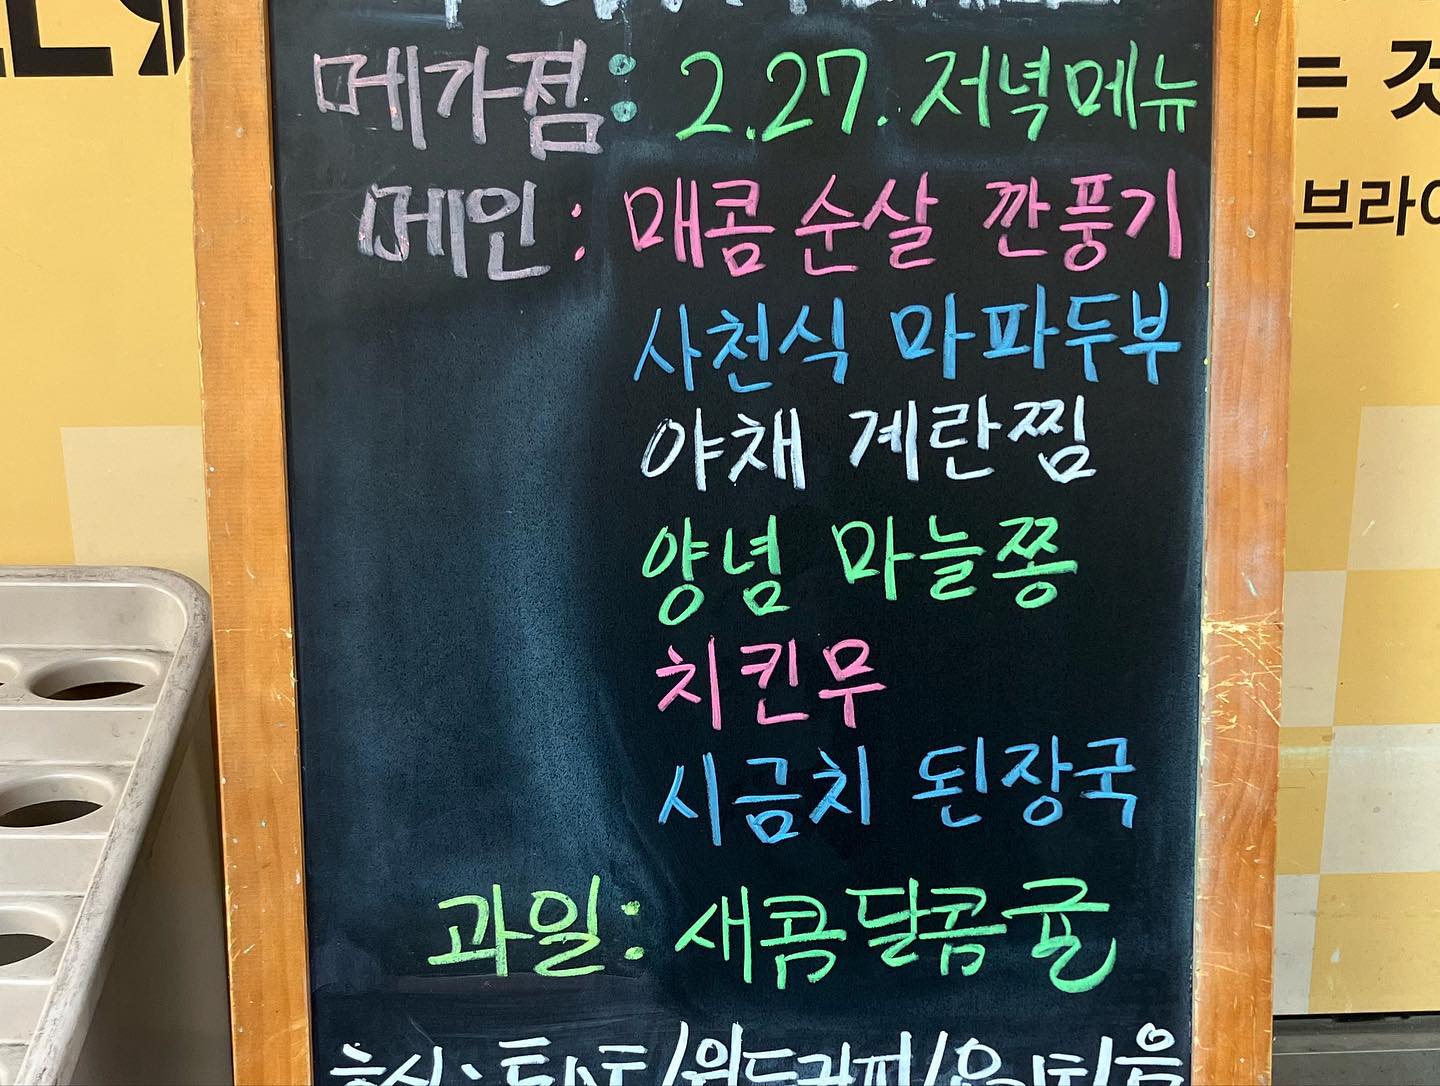 메가점: 2.27. 저녁메뉴
메인: 매콤순살 깐풍기
사천식 마파두부
야채 계란찜
양념 마늘쫑
치킨무
시금치 된장국
과일: 새콤달콤귤
는 것
브라이